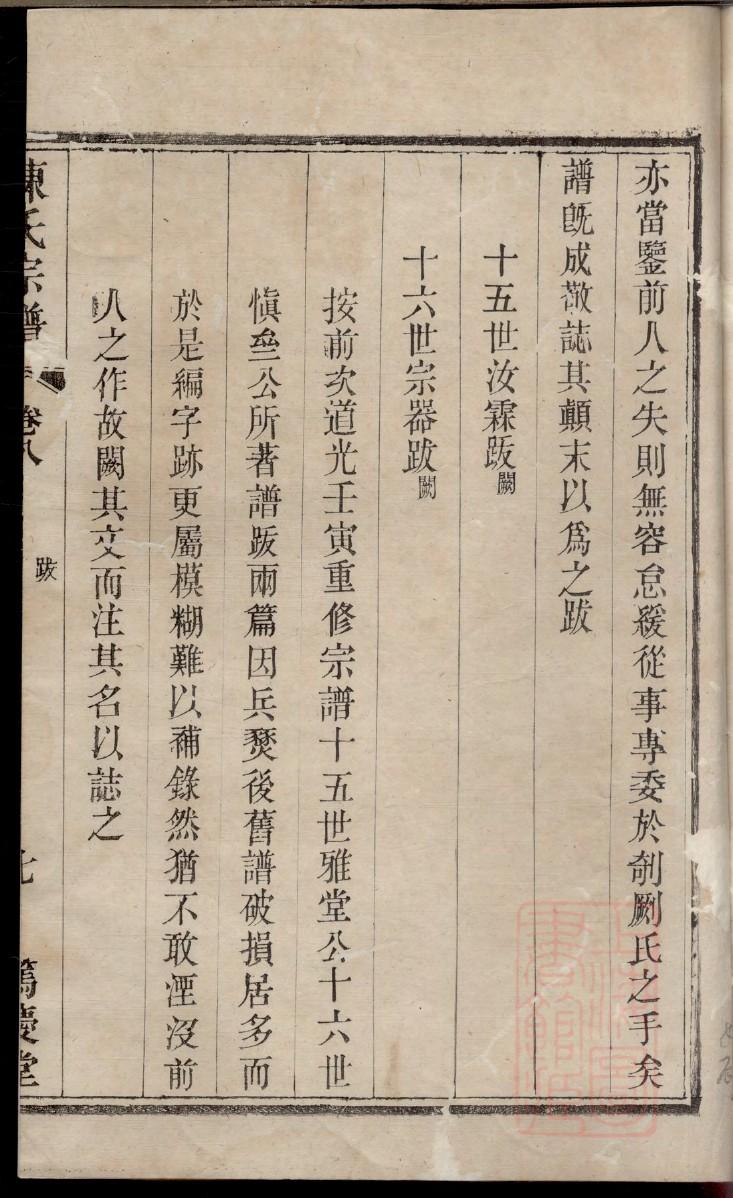 亦當鑒前人之失則無容怠緩從事專委於剞劂氏之手矣
譜既成敬誌其顛末以爲之跋
十五世汝霖跋闕
十六世宗器跋闕
按前次道光壬寅重修宗譜十五世雅堂公十六世
愼壘公所著譜跋兩篇因兵燹後舊譜破損居多而
於是編字跡更屬模糊難以補錄然猶不敢湮沒前
人之作故闕其文而注其名以誌之
陳氏宗譜 卷八 跋 七 篤慶堂